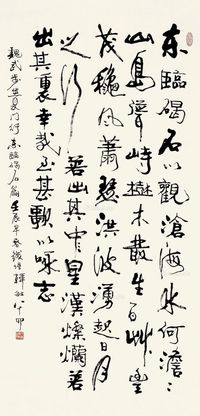 东臨碣石以觀滄海水何澹〻
山島竦峙樹木叢生百艸豐
茂穐風蕭瑟洪波湧起日月
之行若出其中星漢燦爛若
出其裏幸哉至甚歌以咏志
魏武步出夏門行东臨碣石篇壬辰早春